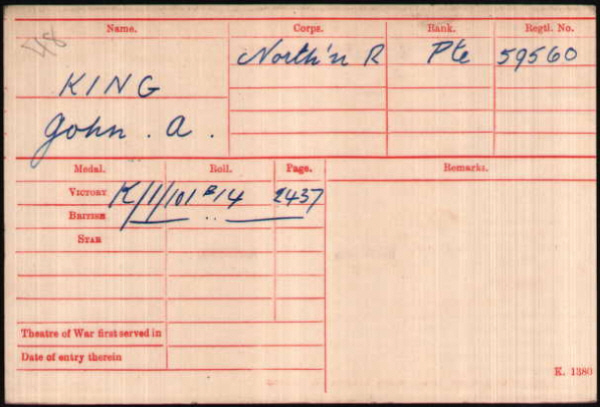 48
Name. Corps. Rank. Regtl. No.
KING North'n R Pte 59560
John. A.
Medal. Roll. Page. Remarks.
VICTORY K/1/101 B14 2437
BRITISH — .. —
STAR
Theatre of War first served in
Date of entry therein
K. 1380